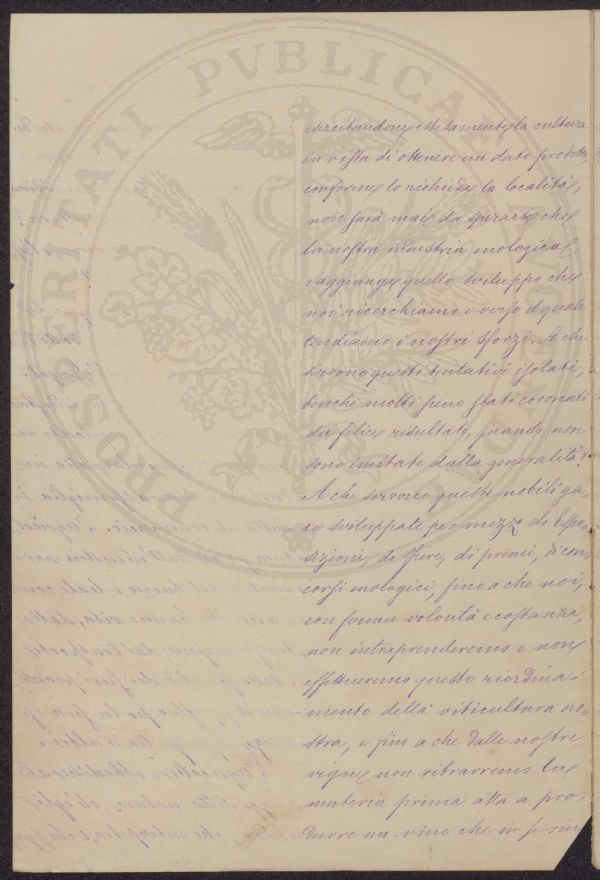 PROSPERITATI PVBLICAE
esercitandone estesamente la cultura
in vista di ottenere un dato prodotto,
conforme lo richiede la località,
non sarà mai da sperarsi che
la nostra industria enologica
raggiunga quello sviluppo che
noi ricerchiamo e verso il quale
tendiamo i nostri sforzi. A che
servono questi tentativi isolati,
benchè molti sieno stati coronati
da felice risultato, quando non
sono imitate dalla generalità?
A che servono queste nobili ga-
re sviluppate per mezzo di Espo-
sizioni, di fiere, di premi, di con-
corsi enologici, fino a che noi,
con ferma volontà e costanza,
non intraprenderemo e non
effettueremo questo riordina-
mento della viticultura no-
stra, e fino a che dalle nostre
vigne non ritrarremo la
materia prima atta a pro-
durre un vino che in se riu-